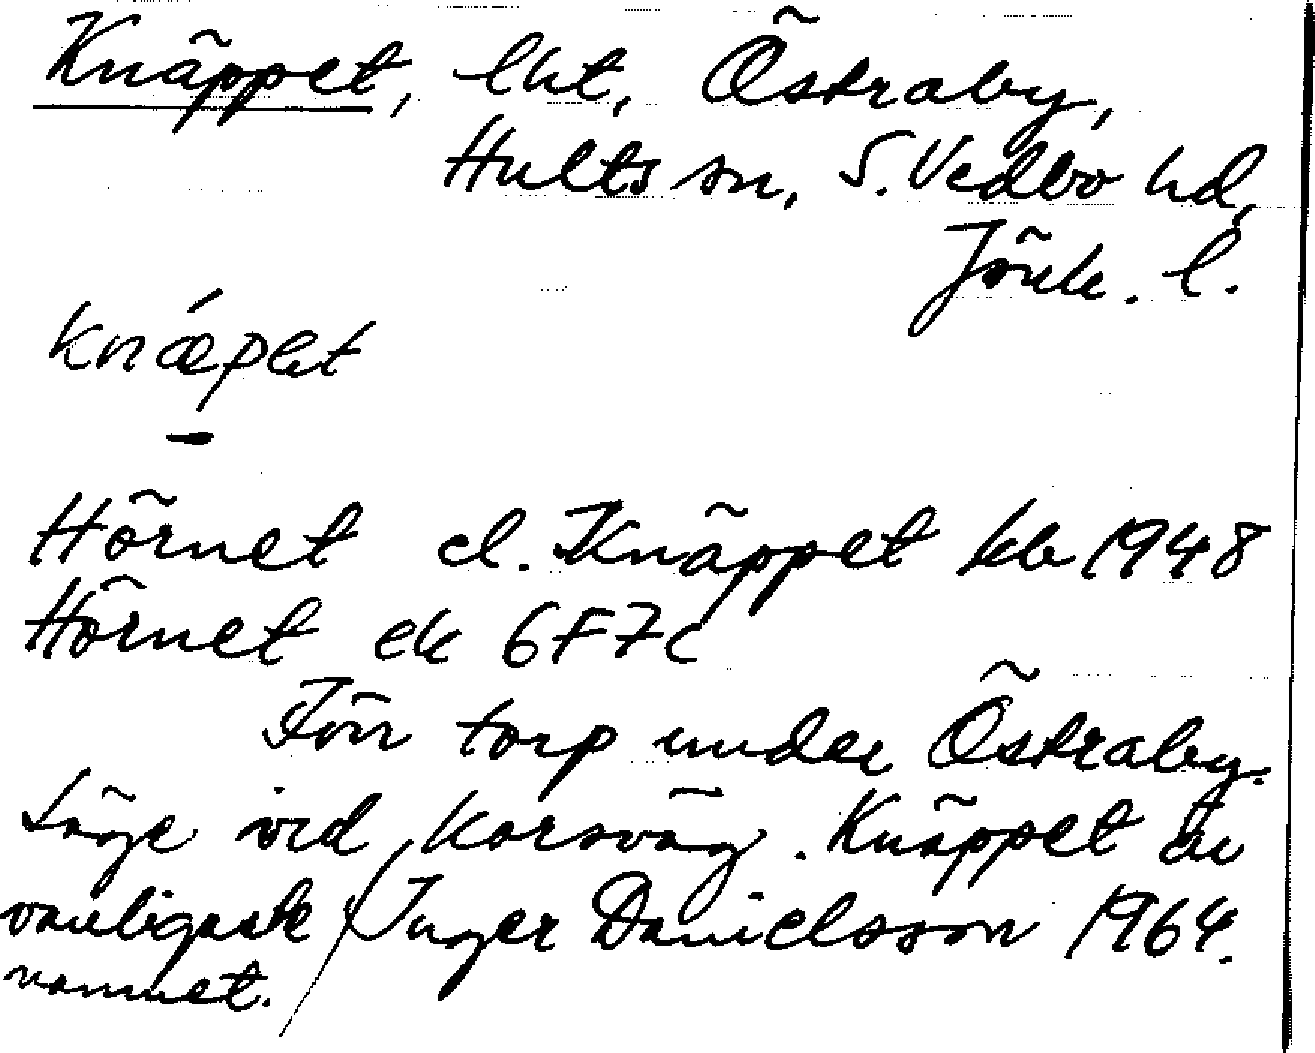 Knäppet, lht, Östraby,
Hults sn, S. Vedbo hd,
Jönk. l.
knǽpet
Hörnet el. Knäppet kb 1948
Hörnet ek 6F7c
Förr torp under Östraby.
Läge vid korsväg. Knäppet är
vanligaste Inger Danielsson 1964.
namnet.